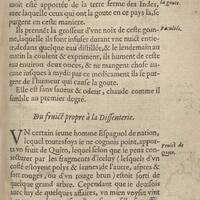 uoit esté apportée de la terre ferme des Indes,
par laquelle ceux qui ont la goute en ce pays là, se
purgent en ceste maniere.
Ils prennét la grosseur d'vne noix de ceste gom-
me, laquelle ils font infuser durant vne nuict enti-
ere, dedans quelque eau distillée, & le lendemain au
matin la coulent & expriment, ils hument de ceste
eau enuiron deux onces, & ne mangent chose au-
cune iusques à midy: par ce medicament ils se pur-
gent de l'humeur qui cause la goute.
Elle est sans saueur & odeur, chaude comme il
semble au premier degré.
la goute.
Facultés.
Du fruict propre à la Dissenterie.
VN certain ieune homme Espagnol de nation,
lequel toutesfoys ie ne cognois point, ap-
porta vn fruit de Quito, lequel selon que ie peux con-
iecturer par les fragments d'iceluy (lesquels d'vn
costé estoyent polys & inegaux de l'autre, aspres &
fort rouges, ou d'vn rouge brun) estoit sorti de
quelque grand arbre. Cependant que ie deuisois
auec luy de quelques affaires, vn mien voysin vint
Fruict de
Quito.